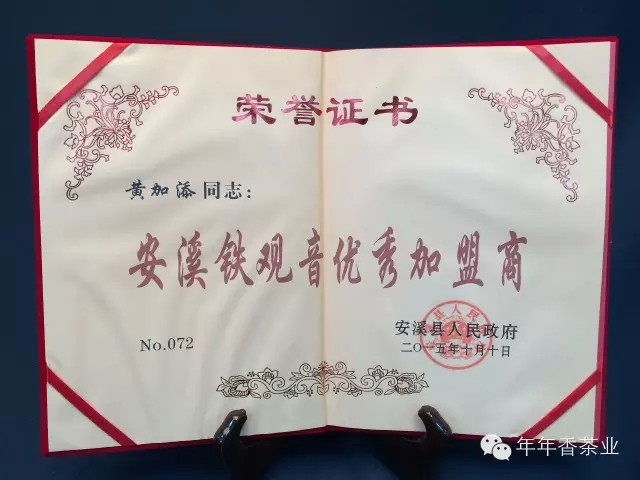 荣誉证书
黄加添同志：
安溪铁观音优秀加盟商
No.072
安溪县人民政府
二〇一五年十月十日
年年香茶业